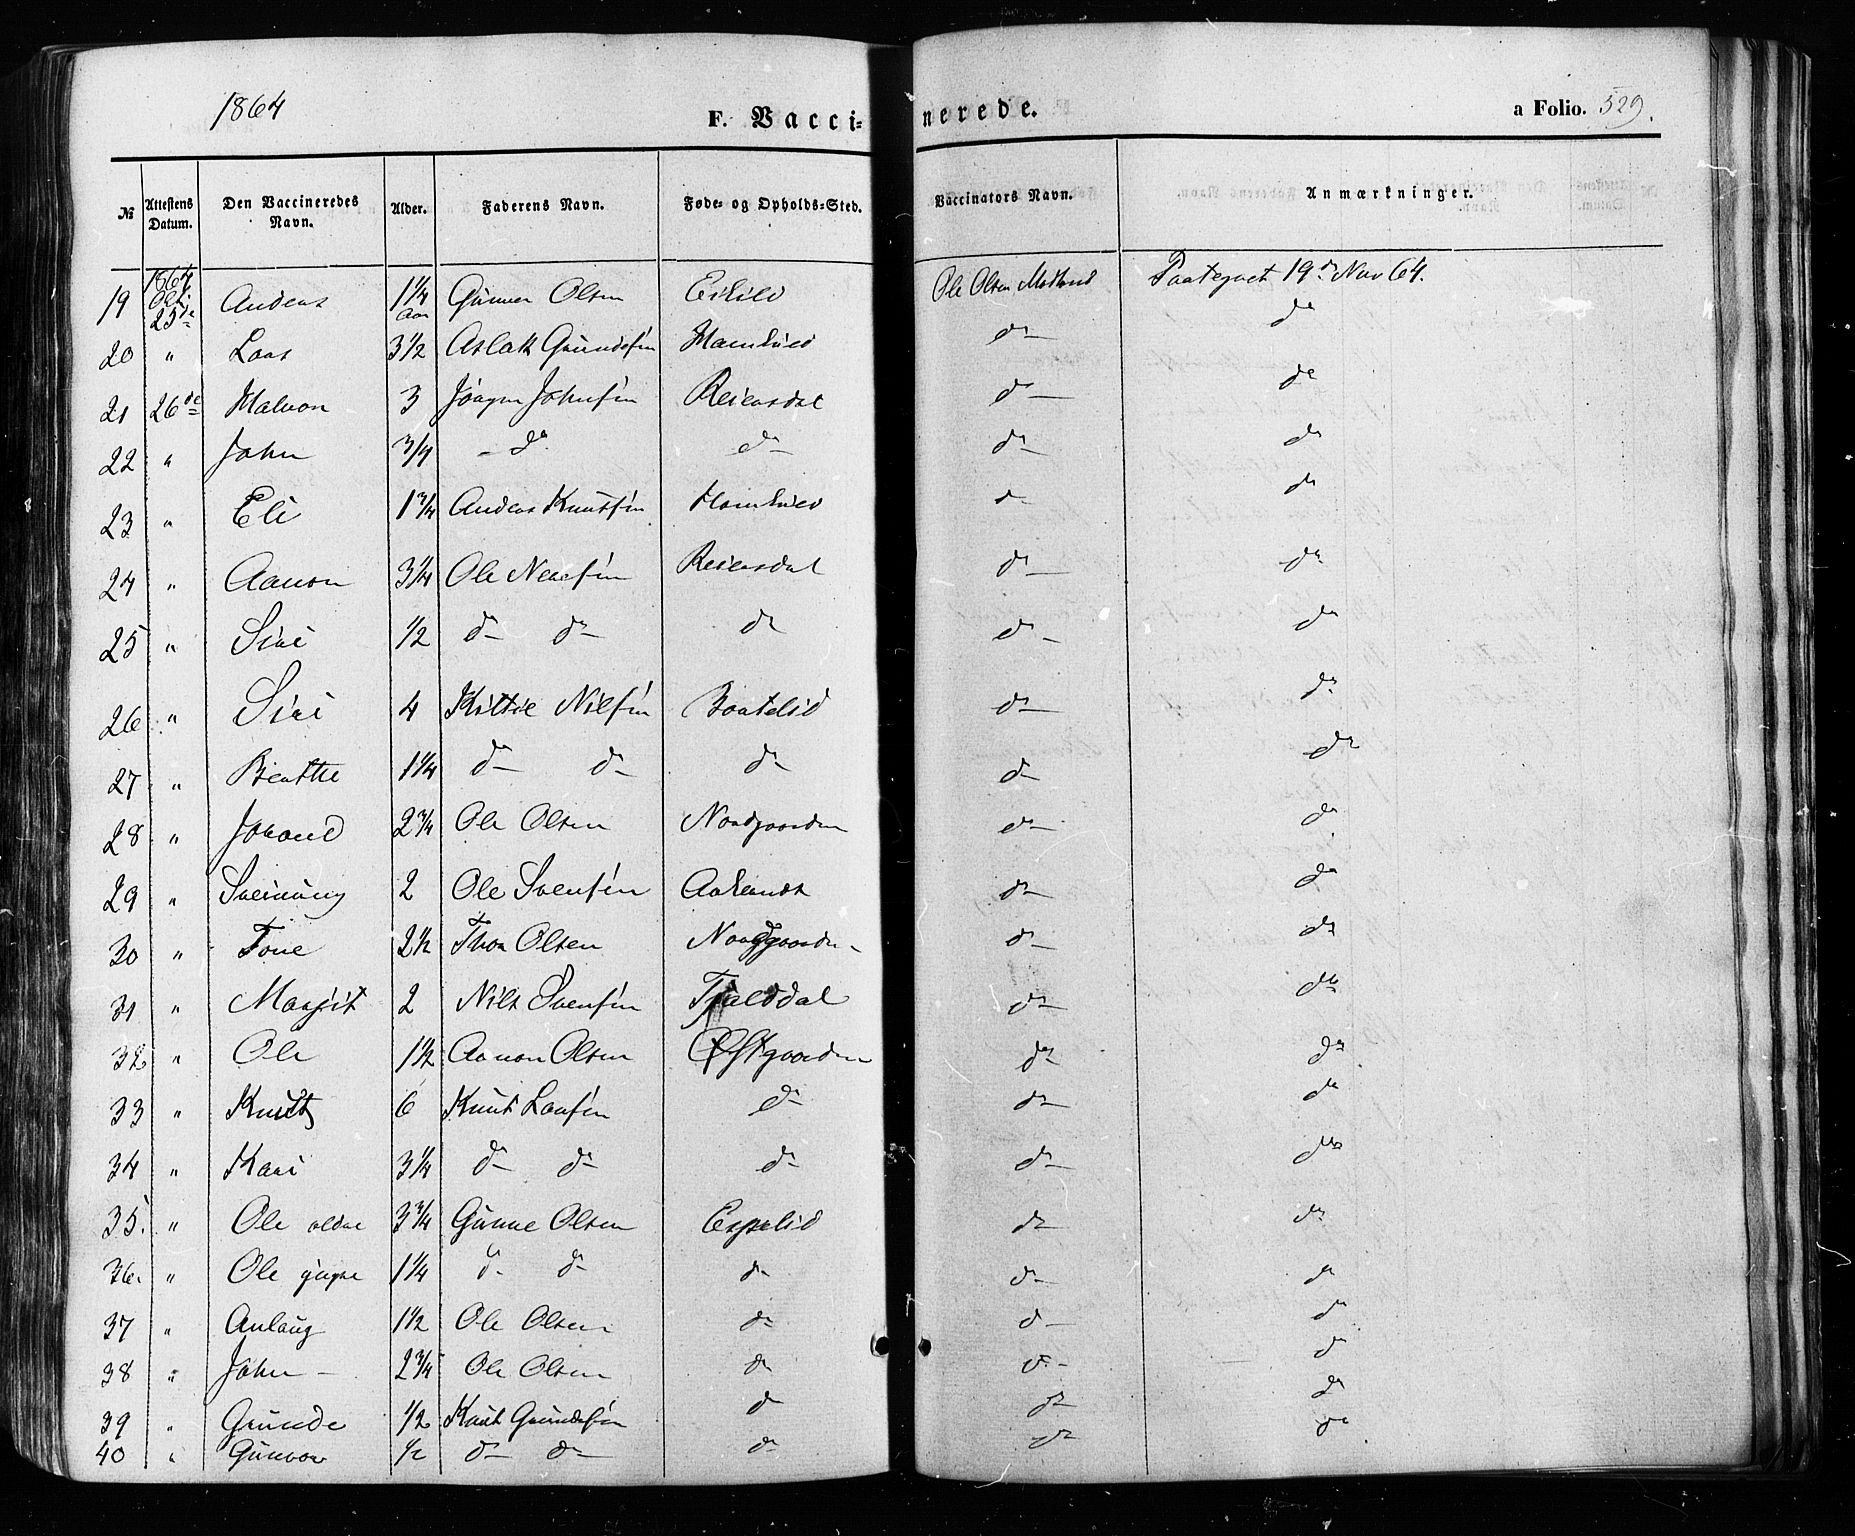 1864 F. Vaccinerede. a Folio. 529.
№ Attestens Datum. Den Vaccineredes Navn. Alder. Faderens Navn. Føde- og Opholds-Sted. Vaccinators Navn. Anmærkninger.
19 1864 Oct. 25de Anders 1 1/4 Aar Gunner Olsen Ole Olsen Paategnet 19de Nov 64.
20 " Lars 3 1/2 Aslak Grundesen Hamlid do do
21 26de Halvor 3 Jörgen Johnsen Reiersdal do do
22 " John 3/4 do do do do
23 " Eli 1 3/4 Anders Knutsen Hamlid do do
24 " Aanon 3 1/4 Ole Reiersdal do do
25 " Siri 1/2 do do do do do
26 " Siri 4 Kittil Nilsen Baatelid do do
27 " Berthe 1 1/4 do do do do do
28 " Jorand 2 3/4 Ole Olsen Nordgaarden do do
29 " Sveinung 2 Ole Svensen do do
30 " Tone 2 1/2 Thor Olsen Nordgaarden do do
31 " Margit 2 Nils Svensen Tjalddal do do
32 " Ole 1 1/2 Aanon Olsen Østgaarden do do
33 " Knut 6 Knut Larsen do do do
34 " Kari 3 1/4 do do do do do
35. " Ole ældre 3 3/4 Gunne Olsen Espelid do do
36. " Ole yngre 1 1/4 do do do do do
37 " Anlaug 1 1/2 Ole Olsen do do do
38 " John 2 3/4 Ole Olsen do do do
39 " Grunde 1/2 Knut Grundesen do do do
40 " Gunvor 1/2 do do do do do